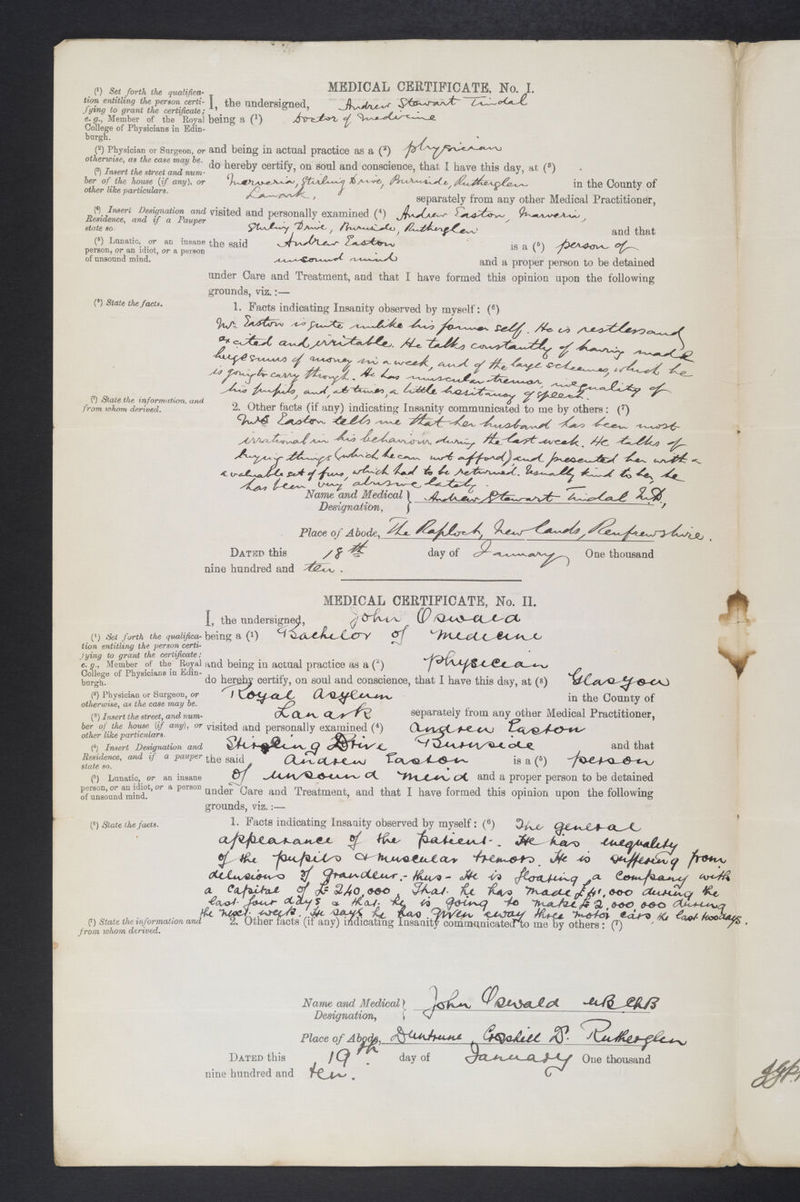 MEDICAL CERTIFICATE, No. I.
(¹) Set forth the qualifica-
tion entitling the person certi-
fying to grant the certificate;
e.g., Member of the Royal
College of Physicians in Edin-
burgh.
I, the undersigned, Andrew Stewart Tindal
being a (¹) Doctor of Medicine
(²) Physician or Surgeon, or
otherwise, as the case may be.
and being in actual practice as a (²) physician
(³) Insert the street and num-
ber of the house (if any), or
other like particulars.
do hereby certify, on soul and conscience, that I have this day, at (³)
Stirling Drive, Burnside, Rutherglen in the County of
Lanark, separately from any other Medical Practitioner,
(⁴) Insert Designation and
Residence, and if a Pauper
state so
visited and personally examined (⁴) Andrew Easton,
Stirling Drive, Burnside, Rutherglen and that
(⁵) Lunatic, or an insane
person, or an idiot, or a person
of unsound mind.
the said Andrew Easton is a (⁵) person of
unsound mind and a proper person to be detained
under Care and Treatment, and that I have formed this opinion upon the following
grounds, viz.:—
(⁶) State the facts.
1. Facts indicating Insanity observed by myself: (⁶)
Mr. Easton is quite unlike his former self. He is restless and
excited and irritable. He talks constantly of having made
huge sums of money in a week, and of the large schemes, which he
is going to carry through. He has muscular tremor, inequality of
his pupils, and, at times, a little hesitancy of speech.
(⁷) State the information, and
from whom derived.
2. Other facts (if any) indicating Insanity communicated to me by others: (⁷)
Mrs Easton tells me that her husband has been most
irrational in his behaviour during the last week. He talks of
buying things (which he can not afford) and presented her with a
valuable set of furs, which had to be returned. Usually kind to her, he
has been very abusive lately.
Name and Medical Designation, Andrew Stewart Tindal M.D,
Place of Abode, The Raploch, Newlands, Renfrewshire.
DATED this 18th day of January One thousand
nine hundred and ten.
MEDICAL CERTIFICATE, No. II.
I, the undersigned, John Oswald
(¹) Set forth the qualifica-
tion entitling the person certi-
fying to grant the certificate;
e.g., Member of the Royal
College of Physicians in Edin-
burgh.
being a (¹) Bachelor of Medicine
and being in actual practice as a (²) Physician
do hereby certify, on soul and conscience, that I have this day, at (³) Glasgow
(²) Physician or Surgeon, or
otherwise, as the case may be.
Royal Asylum in the County of
(³) Insert the street, and num-
ber of the house (if any), or
other like particulars.
Lanark separately from any other Medical Practitioner,
visited and personally examined (⁴) Andrew Easton
(⁴) Insert Designation and
Residence, and if a pauper
state so.
Stirling Drive Burnside and that
the said Andrew Easton is a (⁵) person
(⁵) Lunatic, or an insane
person, or an idiot, or a person
of unsound mind.
of unsound mind and a proper person to be detained
under Care and Treatment, and that I have formed this opinion upon the following
grounds, viz.:—
(⁶) State the facts.
1. Facts indicating Insanity observed by myself: (⁶) The general
appearance of the patient. He has inequality
of the pupils & muscular tremors. He is suffering from
delusions of grandeur:- thus - He is floating a company with
a Capital of £240,000, That he has made £41,000 during the
last four days & that he is going to make £2,000,000 during
the next week. He says he has given away three motor cars the last two days.
(⁷) State the information and
from whom derived.
2. Other facts (if any) indicating Insanity communicated to me by others: (⁷)
Name and Medical Designation, John Oswald MB ChB
Place of Abode, Duntrune, Croshill Dr. Rutherglen
DATED this 19th. day of January One thousand
nine hundred and ten.